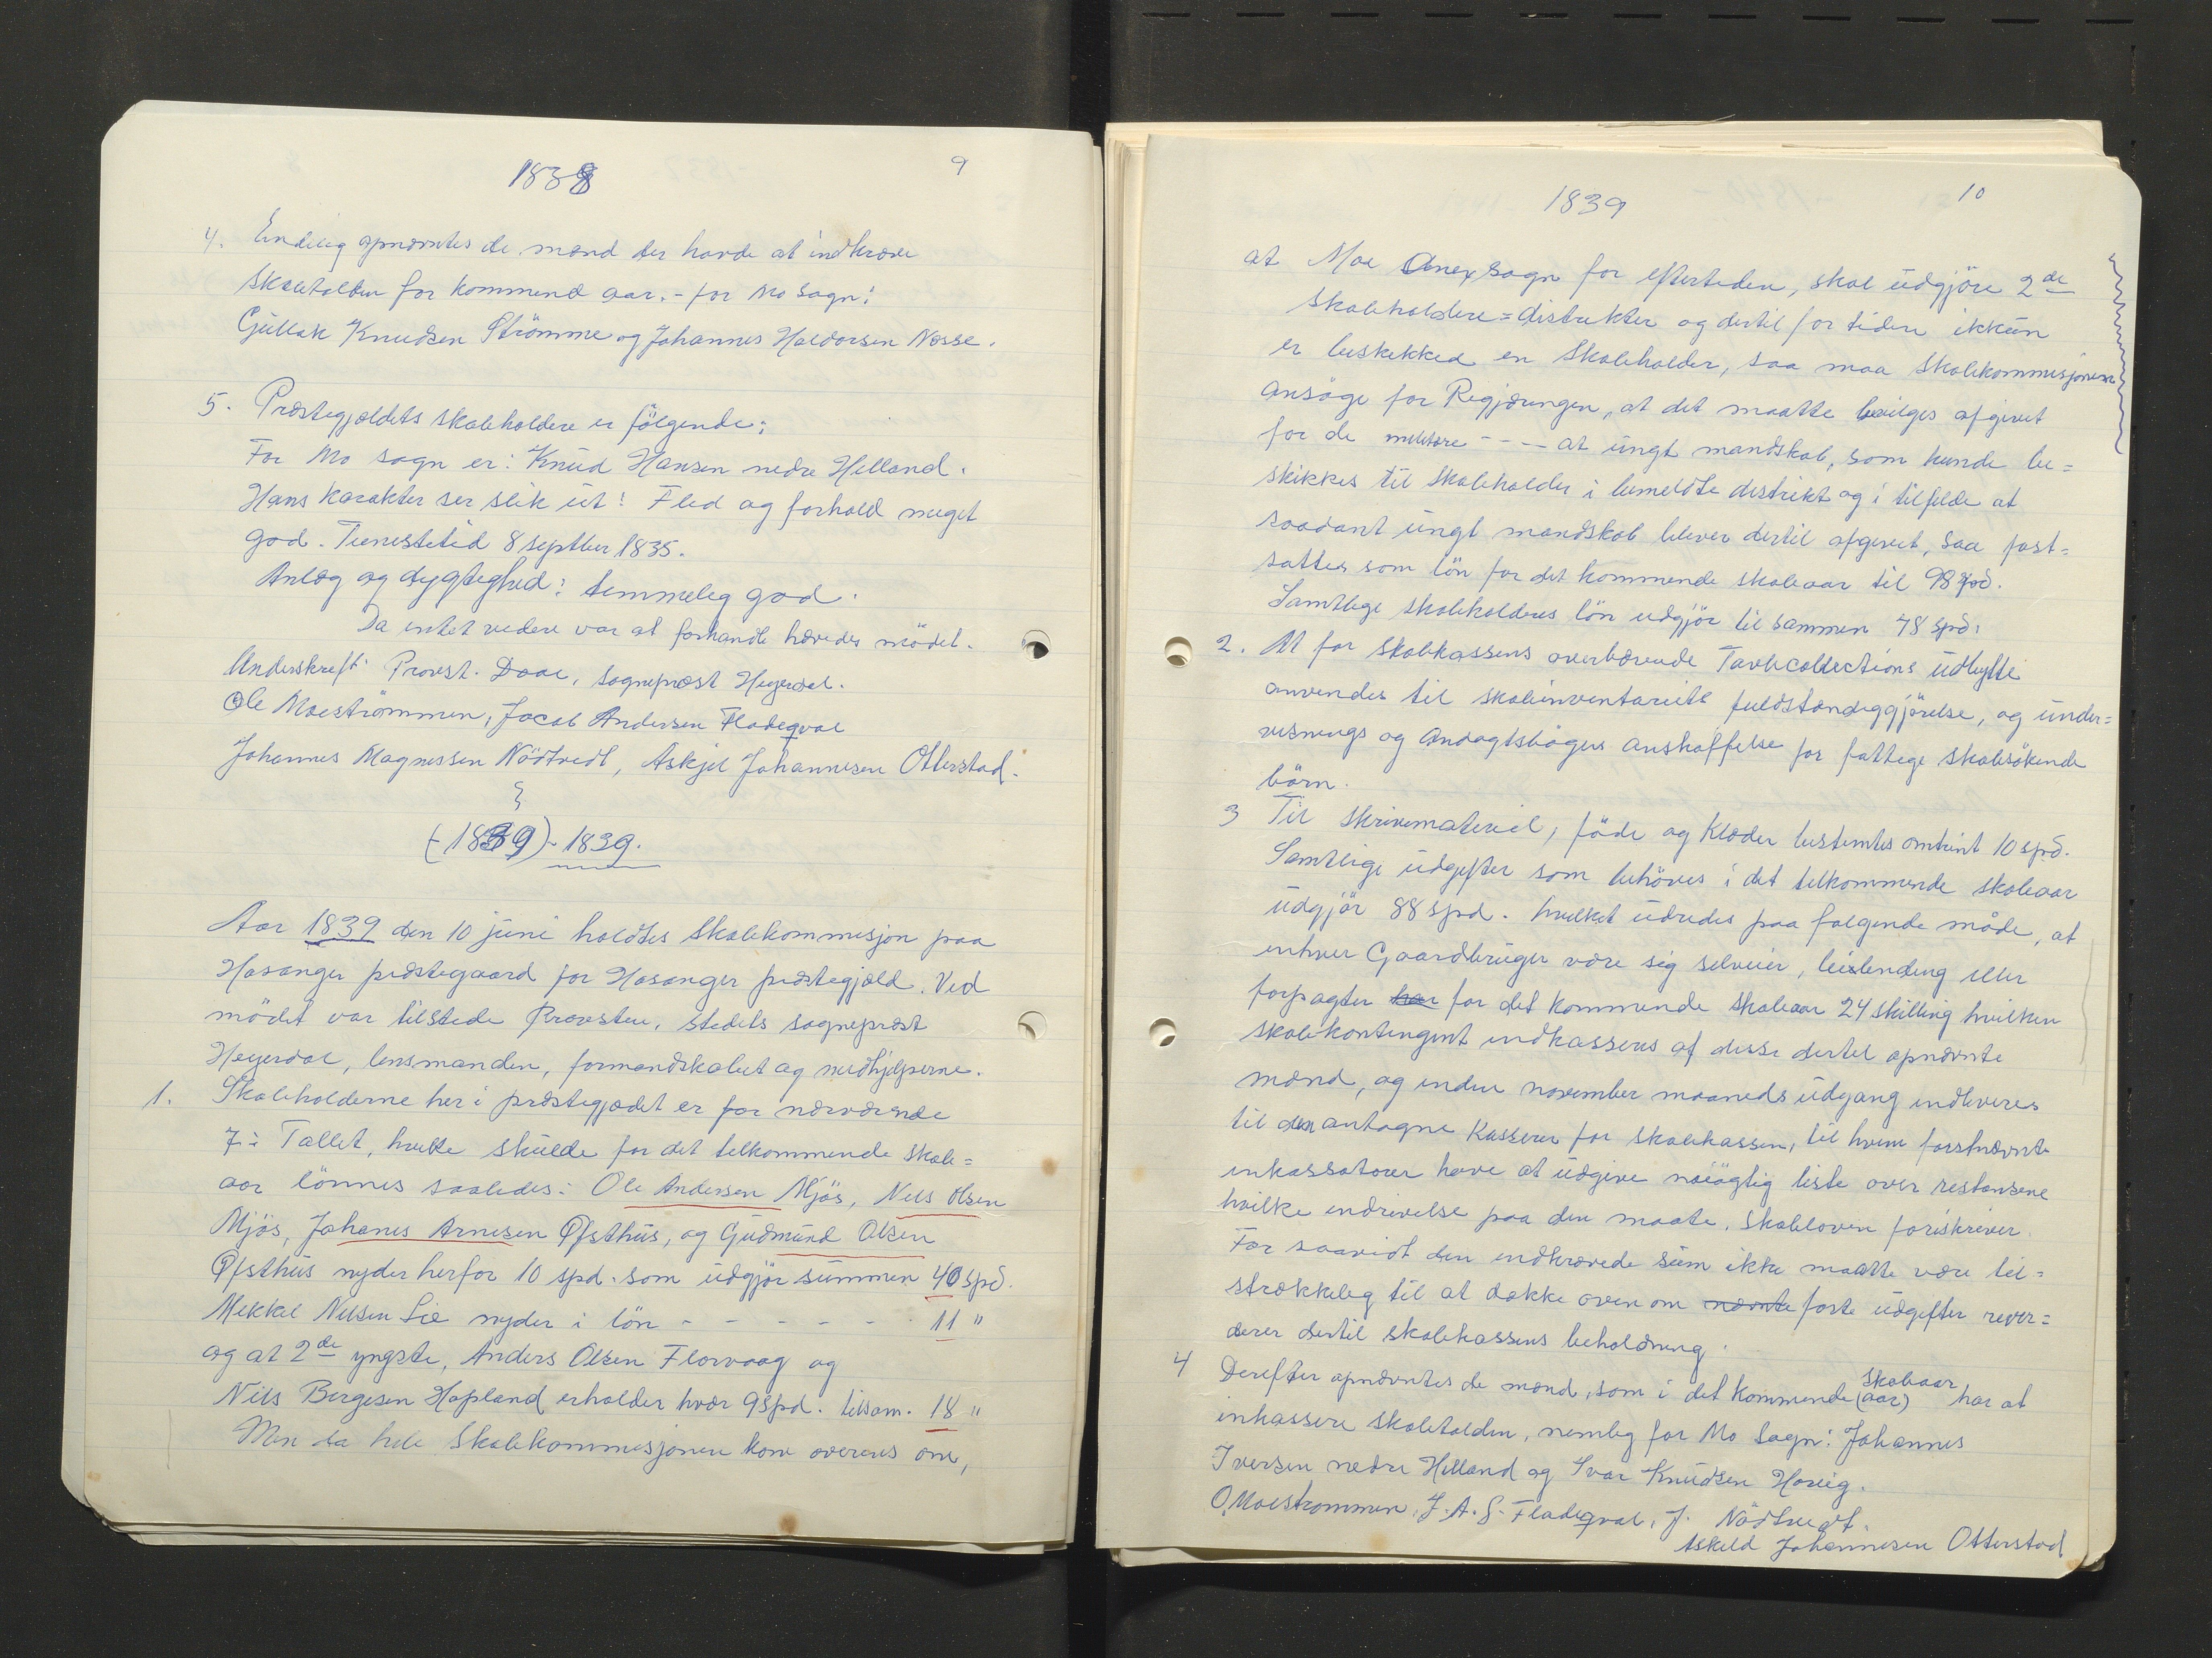 9
1838
4. Endelig opnævntes de mænd der havde at indkræve
Skoletolden for kommend aar. - for Mo sogn:
Gullak Knudsen Strömme og Johannes Haldorsen Nesse.
5. Præstegjældets skoleholdere er fölgende:
For Mo sogn er: Knud Hansen nedre Helland.
Hans karakter ser slik ut: Flid og forhold meget
god. Tienestetid 8 septber 1835.
Anlæg og dygtighed: temmelig god.
Da intet videre var at forhandle hævedes mödet.
Underskreft: Provst. Daae, sogneprest Heyerdal.
Ole Moeströmmen, Jacob Andersen Fladeqval
Johannes Magnussen Nödtvedt, Askjel Johannesen Otterstad.
(-1839)- 1839.
Aar 1839 den 10 juni holdtes Skolekommesjon paa
Hosanger præstegaard for Hosanger præstegjæld. Ved
mödet var tilstede Provsten, stedets sogneprest
Heyerdal, lensmanden, formandskabet og medhjelperne.
1. Skoleholderne her i præstegjædet er for nærværende
7 i Tallet, hvilke skulde for det tilkommende skole=
aar lönnes saaledes: Ole Andersen Mjös, Nils Olsen
Mjös, Johanes Arnesen Ofsthus, og Gudmund Olsen
Ofsthus nyder herfor 10 spd. som udgjör summen 40 spd.
Mikkel Nilsen Lie nyder i lön - - - - - - 11 "
og at 2de yngste, Anders Olsen Florvaag og
Nils Bergesen Hopland erholder hvær 9 spd. tilsam. 18 "
Men da hele Skolekommesjonen kom overens om,
10
1839
at Moe Anex sogn for eftertiden, skal udgjöre 2de
Skoleholdere=distrikter og dertil for tiden ikkun
er beskikked en Skoleholder, saa maa Skolekommisjonen
ansöge for Regjæringen, at det maatte bevilges afgivet
for de militære - - - - at ungt mandskab, som kunde be=
skikkes til Skoleholder i bemeldte distrikt og i tilfelde at
saadant ungt mandskab bliver dertil afgivet, saa fast=
sættes som lön for det kommende skoleaar til 98 spd.
Samtlige skoleholderes lön udgjör til sammen 78 spd.
2. At for skolekassens overbærende Tavlecollections udbytte
anvendes til skoleinventariets fuldstændiggjörelse, og under=
visnings og Andagtsbögers anskaffelse for fattige skolesökende
börn.
3 Til skrivemateriel, föde og Klæder bestemtes omtrint 10 spd.
Samtlige udgifter som behöves i det tilkommende skoleaar
udgjör 88 spd. hvilket udredes paa folgende måde, at
enhver Gaardbruger være sig selveier, leilending eller
forpagter har for det kommende skoleaar 24 skilling hvilken
skolekontingent indkasseres af disse dertil opnævnte
mænd, og inden november maaneds udgang indleveres
til den antagne Kasserer for skolekassen, til hvem forstnævnte
inkassatorer have at udgive nöiagtig liste over restansene
hvilke indrivelse paa den maate, skoleloven foriskriver.
For saavidt den indkrævede sum ikke maatte være til=
strækkelig til at dække oven om nævnte faste udgifter rever=
derer dertil skolekassens beholdning.
4 Derefter opnævntes de mænd, som i det kommende (aar) skoleaar har at
inkassere skoletolden, nemlig for Mo Sogn: Johannes
Iversen nedre Helland og Ivar Knudsen Hosøig.
O. Moestrommen. J. A. S. Fladeqval, J. Nödtvedt.
Askeld Johannesen Otterstad